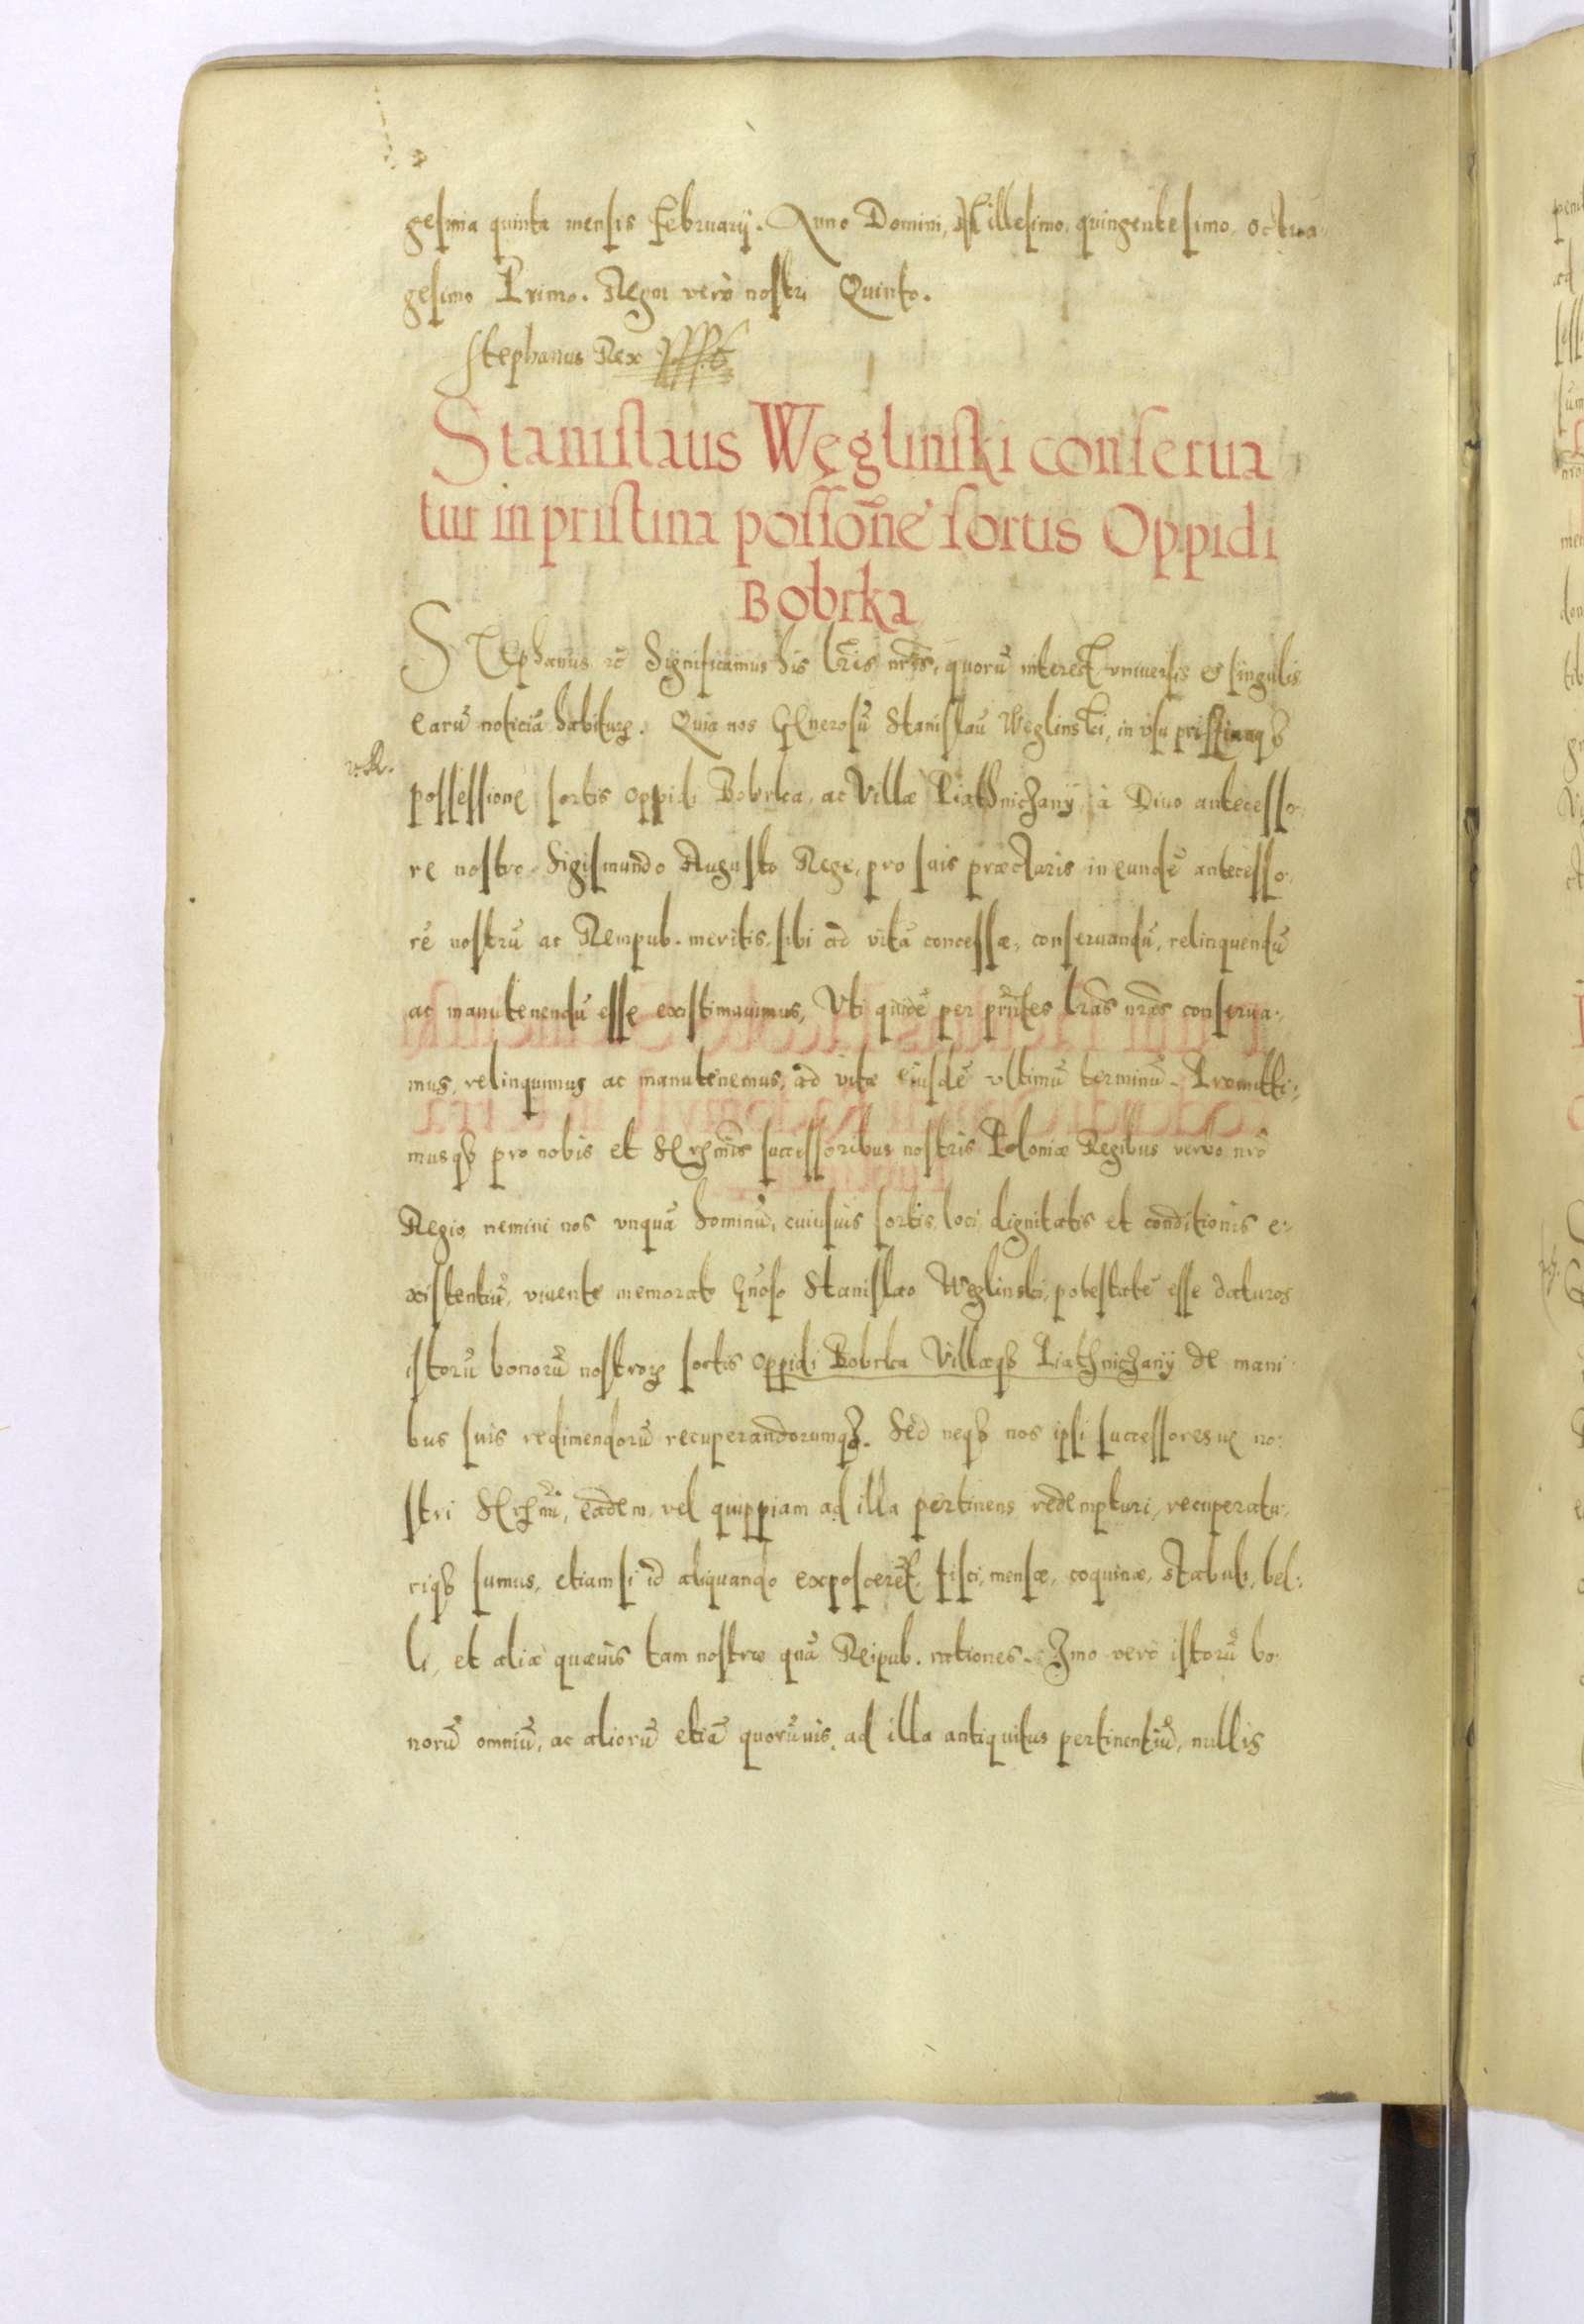 gesima quinta mensis Februarij. Anno Domini, Millesimo, quingentesimo, octua
gesimo Primo. Regni verò nostri Quinto.
Stephanus Rex
Stanislaus Węglinski conserua
tur in pristina possone͂ sortis Oppidi
Bobrka
STephanus rc̃ Significamus his lr̃is nr̃is, quorũ interest vniuersis et singulis
earũ noticiã habituꝝ. Quia nos Generosũ Stanislaũ Węglinski, in vsu pristinaqꝫ
possessione sortis oppidi Bobrka, ac Villæ Piathnichany à Diuo antecesso-
re nostro Sigismundo Augusto Rege, pro suis præclaris in eundẽ antecesso-
rẽ nostrũ ac Rempub. meritis, sibi ad vitã concessæ, conseruandũ, relinquendũ
ac manutenendũ esse existimauimus, Vti quidẽ per pñtes lr̃as nr̃as conserua-,
mus, relinquimus ac manutenemus, ad vitæ eiusdẽ vltimũ terminũ. Promitti-,
musqꝫ pro nobis et Serẽmis successoribus nostris Poloniæ Regibus verbo nr̃o
Regio, nemini nos vnquã hominũ, cuiusuis sortis, loci, dignitatis et conditionis e-,
xistentiũ, viuente memorato Gñoso Stanislao Węglinski, potestatẽ esse daturos
istorũ bonorũ nostroꝝ sortis oppidi Bobrka Villæqꝫ Piathnichanij de mani
bus suis redimendorũ recuperandorumqꝫ. Sed neqꝫ nos ipsi successoresue no-
stri Serẽmi, eadem, vel quippiam ad illa pertinens redempturi, recuperatu-,
riqꝫ sumus, etiamsi id aliquando exposcerẽt, fisci, mensæ, coquinæ, stabuli, bel-,
li, et aliæ quæuis tam nostræ quã Reipub. rationes. Imo verò istorũ bo-
norũ omniũ, ac aliorũ etiã quorũuis, ad illa antiquitus pertinentiũ, nullis